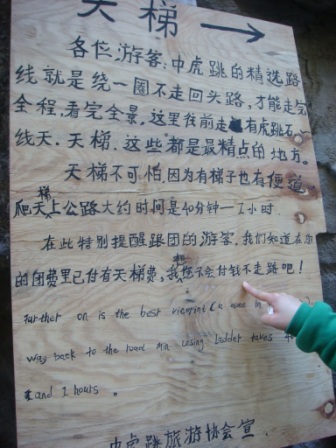 天梯 →
各位游客:中虎跳的精选路
线就是绕一圈不走回头路,才能走完
全程,看完全景,这里往前走 有虎跳石、一
线天、天梯,这些都是最精点的地方。
天梯不可怕,因为有梯子也有便道
爬天梯上公路大约时间是40分钟—1小时
在此特别提醒跟团的游客,我们知道在您
的团费里已付有天梯费,我想您不会付钱不走路吧!
Further on is the best viewpoint
way back to the road. Min using ladder takes
and 1 hours.
中虎跳旅游协会宣